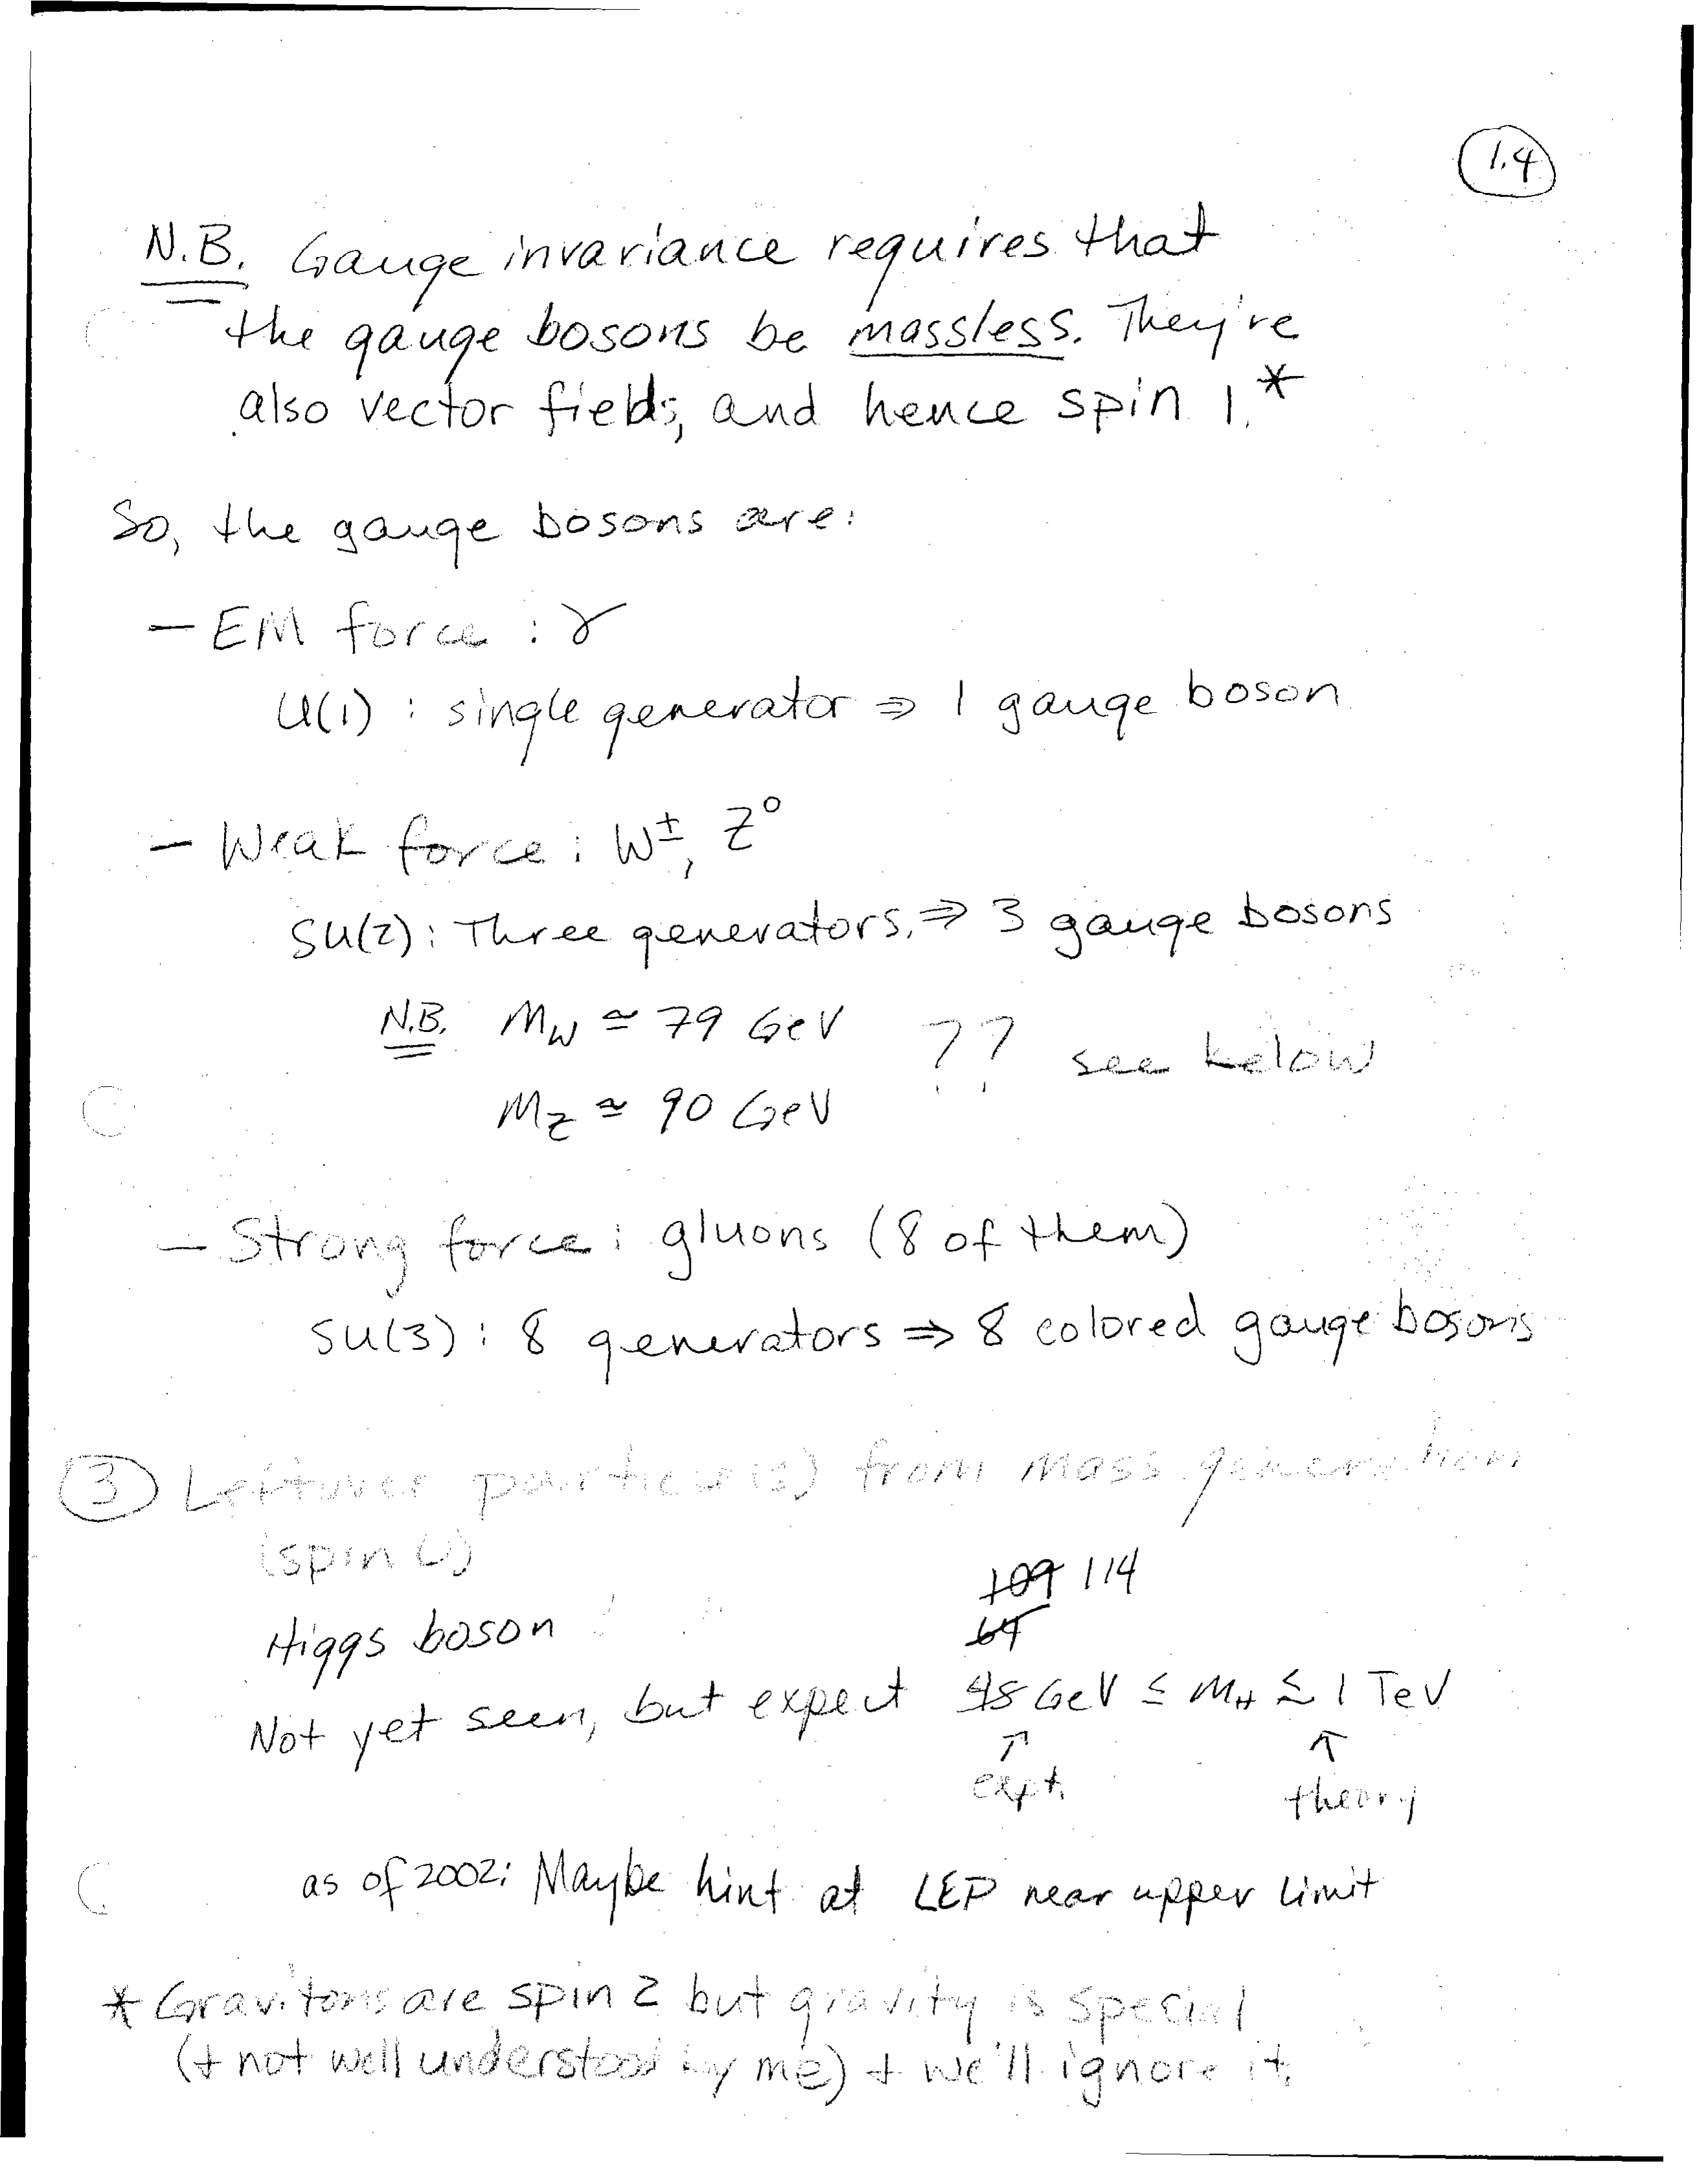 1.4
N.B. Gauge invariance requires that
the gauge bosons be massless. They're
also vector fields, and hence spin 1.*
So, the gauge bosons are:
— EM force : γ
U(1) : single generator ⇒ 1 gauge boson
— Weak force : W±, Z⁰
SU(2): Three generators, ⇒ 3 gauge bosons
N.B. MW ≃ 79 GeV ?? see below
MZ ≃ 90 GeV
— Strong force : gluons (8 of them)
SU(3) : 8 generators ⇒ 8 colored gauge bosons
3 Leftover particle(s) from mass generation
(spin 0)
109 114
Higgs boson 64
Not yet seen, but expect 48 GeV ≤ MH ≲ 1 TeV
↑ ↑
expt. theory
as of 2002: Maybe hint at LEP near upper limit
* Gravitons are spin 2 but gravity is special
(+ not well understood by me) + we'll ignore it.